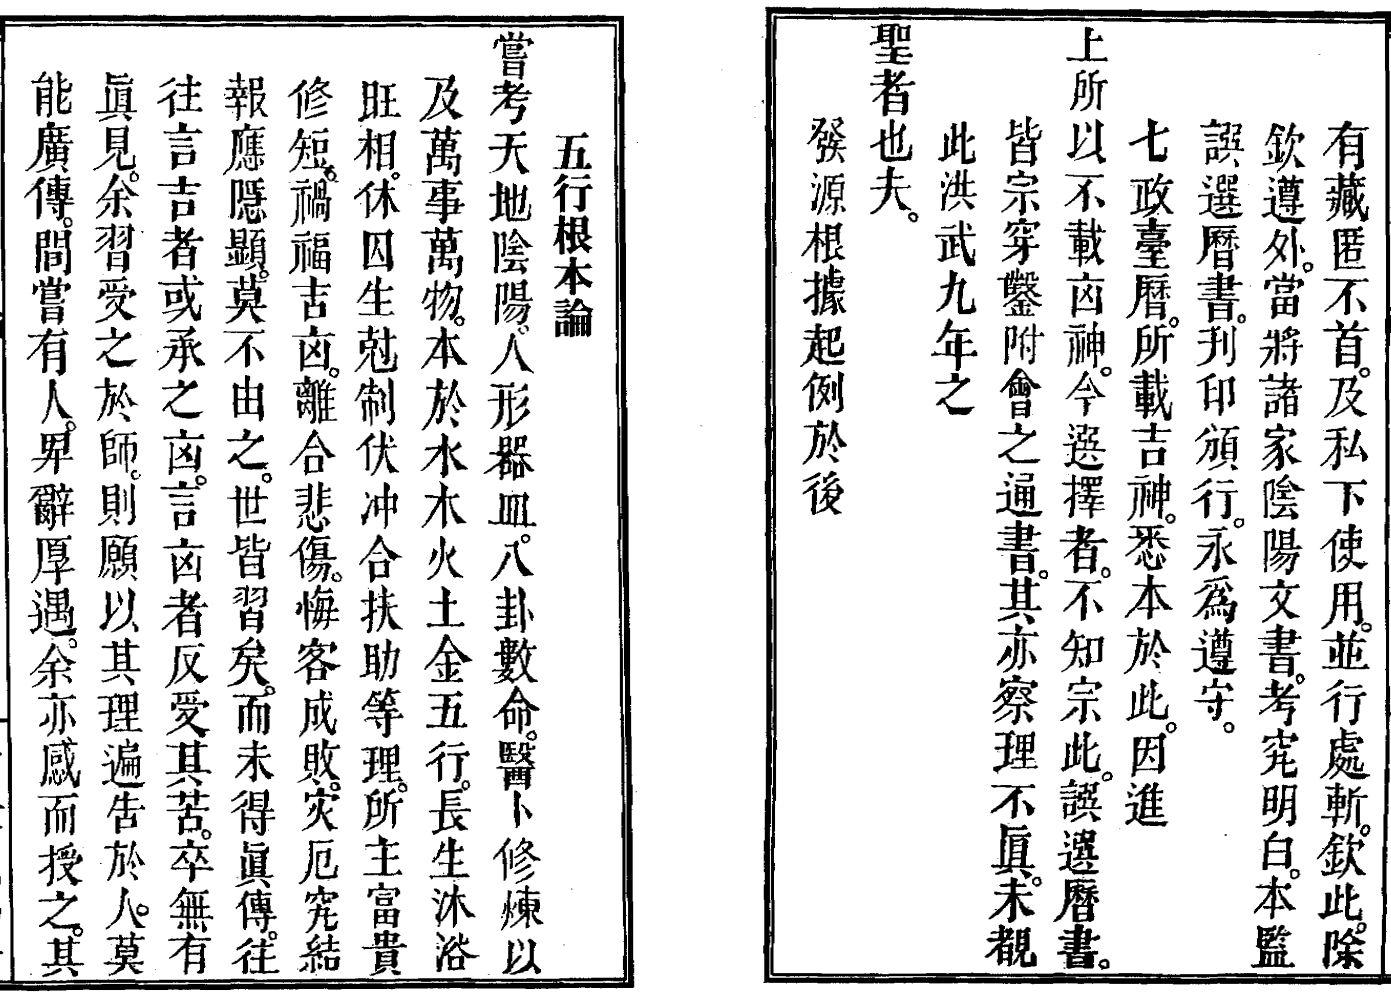 有藏匿不首。及私下使用。並行處斬。欽此。除
欽遵外。當將諸家陰陽文書。考究明白。本監
誤選曆書。刋印頒行。永爲遵守。
七政臺曆。所載吉神。悉本於此。因進
上所以不載凶神。今選擇者。不知宗此。誤選曆書。
皆宗穿鑿附會之通書。其亦察理不眞。未覩
此洪武九年之
聖者也夫。
發源根據起例於後
五行根本論
嘗考天地陰陽。人形器皿。八卦數命。醫卜修煉以
及萬事萬物。本於水木火土金五行。長生沐浴
旺相。休囚生尅制伏冲合扶助等理。所主富貴
修短。禍福吉凶。離合悲傷。悔吝成敗。灾厄究結
報應隱顯。莫不由之。世皆習矣。而未得眞傳。往
往言吉者或承之凶。言凶者反受其苦。卒無有
眞見。余習受之於師。則願以其理遍告於人。莫
能廣傳。間嘗有人。卑辭厚遇。余亦感而授之。其